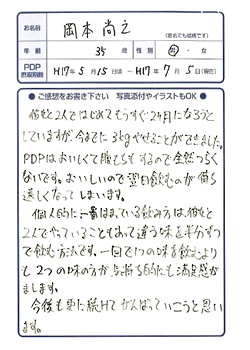 お名前 岡本尚之 (匿名でも結構です)
年齢 35歳 性別 男・女
PDP摂取期間 H17年5月15日頃〜H17年7月5日(現在)
●ご感想をお書き下さい 写真添付やイラストもOK●
彼女と2人ではじめてもうすぐ2ヶ月になろうと
していますが、今までに3kgやせることができました。
PDPはおいしくて腹もちもするので全然つらく
ないです。おいしいので翌日飲むのが待ち
遠しくなってしまいます。
個人的に一番はまっている飲み方は、彼女と
2人でやっていることもあって違う味を半分ずつ
で飲む方法です。一回で1つの味を飲むより
も2つの味の方が気持ち的にも満足感が
まします。
今後も更に続けてがんばっていこうと思い
ます。